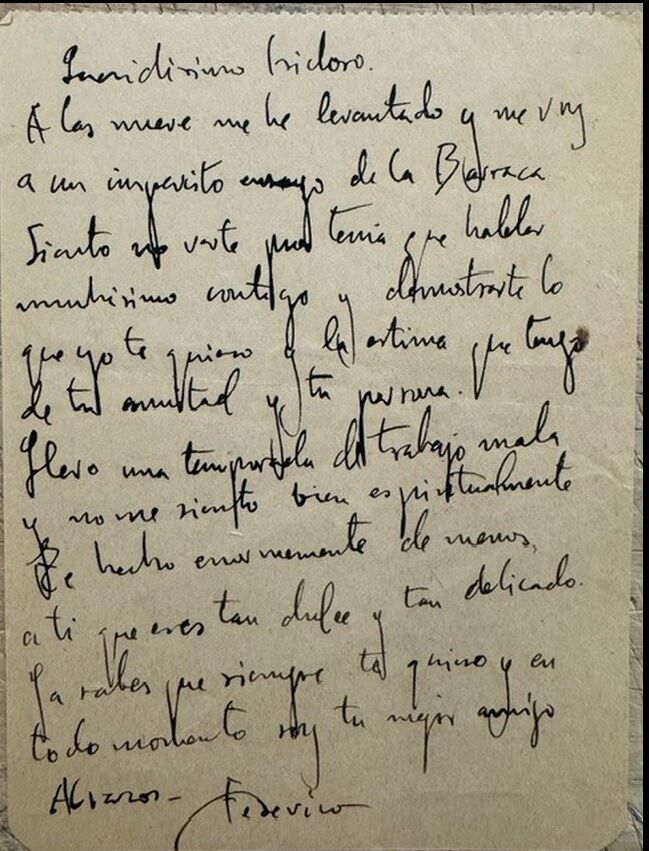 Queridisimo Isidoro.
A las nueve me he levantado y me voy
a un imperito ensayo de la Barraca
Siento no verte pues tenia que hablar
muchisimo contigo y demostrarte lo
que yo te quiero y la estima que tengo
de tu amistad y tu persona.
Llevo una temporada de trabajo mala
y no me siento bien espiritualmente
Te hecho enormemente de menos,
a ti que eres tan dulce y tan delicado.
Ya sabes que siempre te quiero y en
todo momento soy tu mejor amigo
Abrazos-
Federico